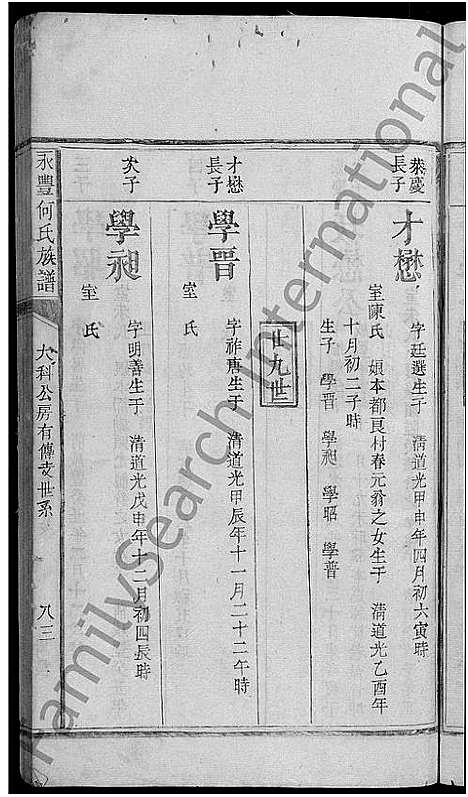 恭慶
長子
才懋
字廷選生于 清道光甲申年四月初六寅時
室陳氏 娘本都良村春元翁之女生于 清道光乙酉年
十月初二子時
生子 學晋 學昶 學昭 學普
廿九世
才懋
長子
學晋
字祚唐生于 清道光甲辰年十一月二十二午時
室 氏
次子
學昶
字明善生于 清道光戊申年十二月初四辰時
室 氏
永豐何氏族譜
大科公房有傳支世系
八三
FamilySearch International